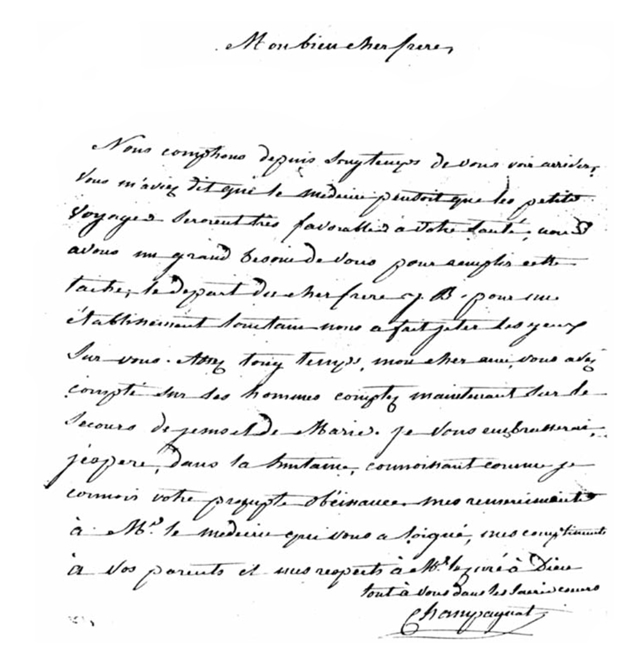 Mon bien cher frere,
Nous comptions depuis longtemps de vous voir arriver,
vous m'aviez dit que le medecin pensoit que les petits
voyages seroient très favorables à votre santé, nous
avons un grand besoin de vous pour remplir cette
tache, le depart du cher frere J B. pour un
établissement lointain nous a fait jeter les yeux
sur vous. Assez long temps, mon cher ami, vous avez
compté sur les hommes comptez maintenant sur le
secours de Jesus et de Marie. je vous embrasserai,
j'espere, dans la huitaine, connoissant comme je
connois votre prompte obéissance. mes remerciments
à Mr. le medecin qui vous a soigné, mes compliments
à vos parents et mes respects à Mr. le curé à Dieu
tout à vous dans les sacrés coeurs
Champagnat